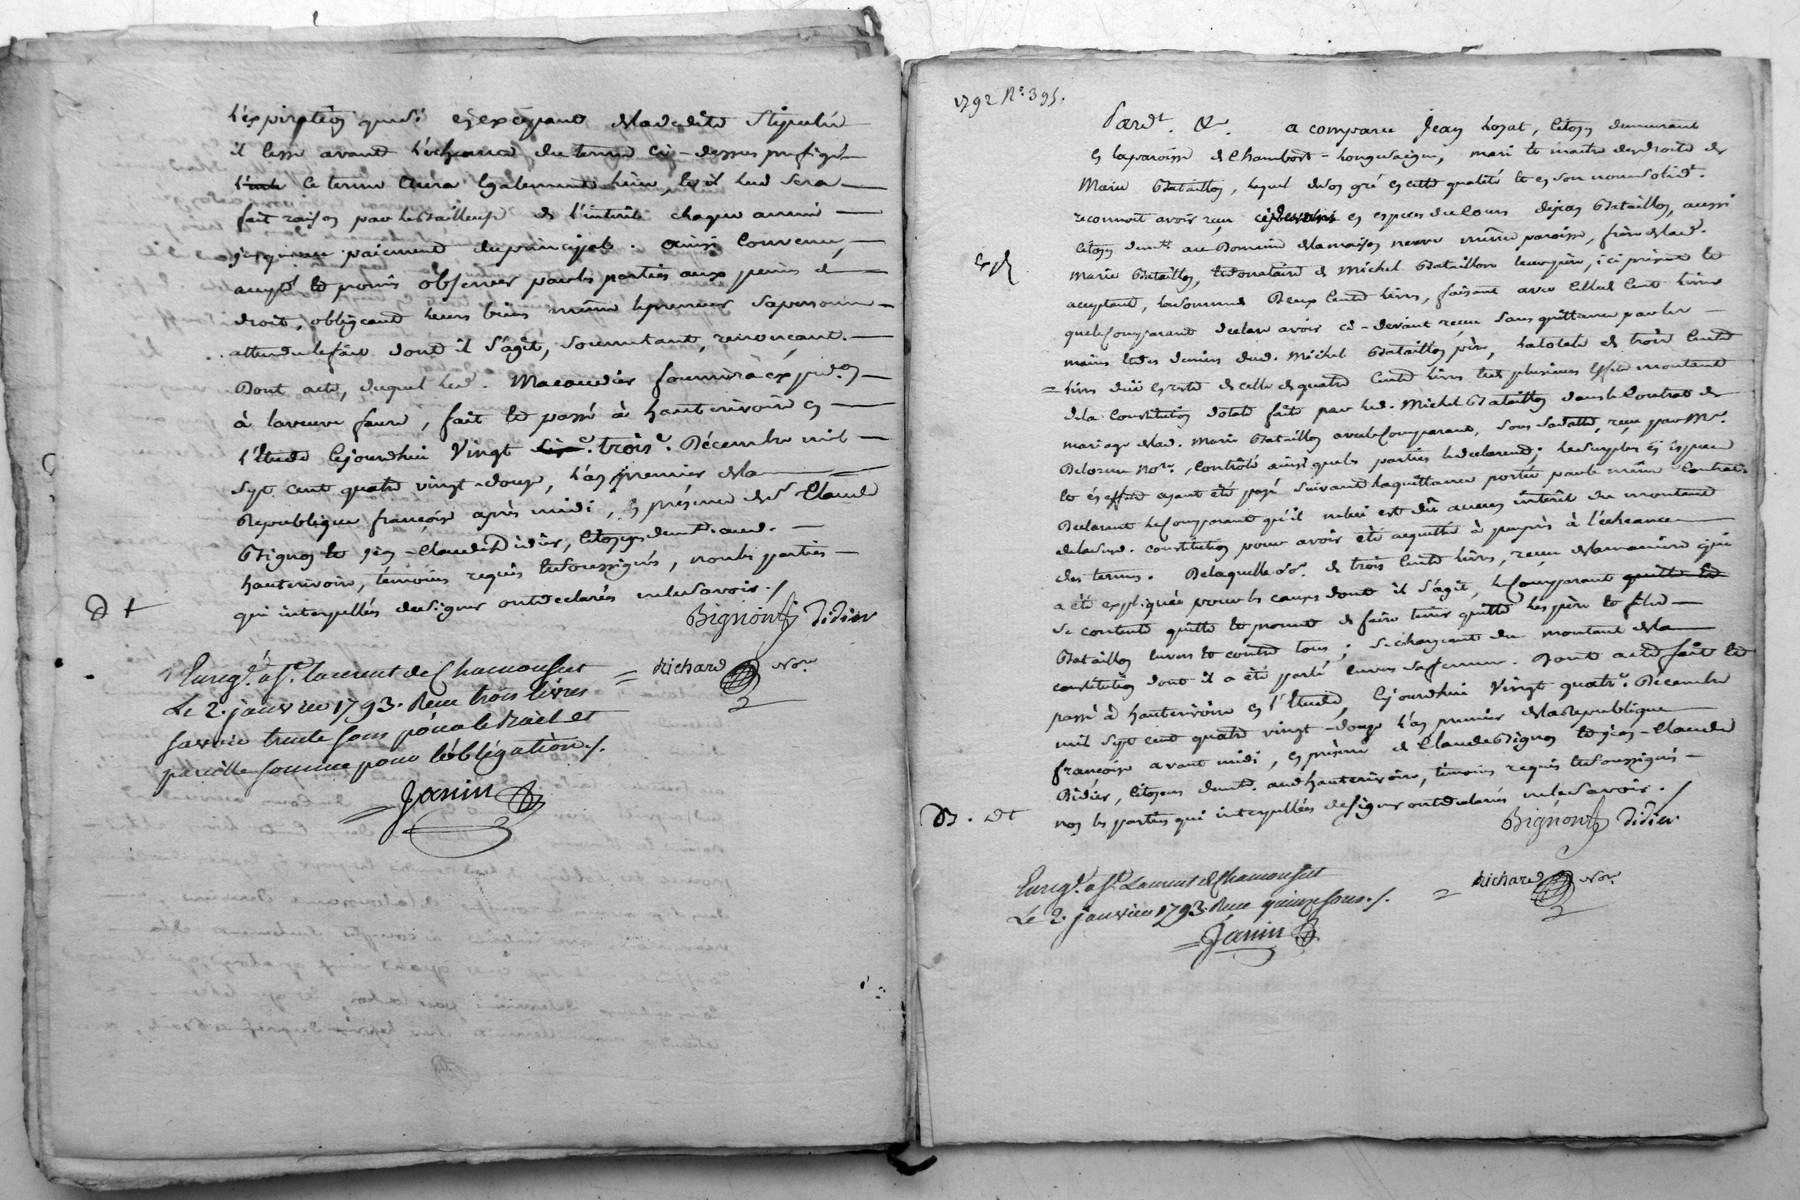 l'expiration
il lesse avant l'échéance du terme ci-dessus prefigé
ce terme aura également lieu, led sera
fait raison par le Bailleur de l'intérêt chaque année
jusqu'au paiement du principal. ainsi convenu,
accepté et promis observer par les parties aux peines de
droit, obligeant leurs biens même le premier sa personne
attendu le fait dont il s'agit, soumettant, renonçant.
Dont acte, duquel led. fournira expédon
à la veuve faure, fait et passé à hauterivoire en
l'Etude cejourdhui Vingt troise Décembre mil
sept cent quatre vingt-douze, l'an premier de la
République françoise après midi, en présence de Sr Claude
Bignon et jean-Claude Didier, Citoyens demt aud.
hauterivoire, témoins requis et soussignés, non les parties
qui interpellés de signer ont déclarés ne le savoir ./
D t
Bignon Didier
Enregé. a St. laurent de Chamousset
Le 2. janvier 1793. Reçu trois livres
Savoir trente sous pour le Bail et
pareille somme pour l'obligation ./
= Richard Nore
= Janin
1792 No. 395.
Pardt. &. a comparu Jean , Citoyn demeurant
en la paroisse de Chambost-Longuesaigne, mari et maitre des droits de
Marie Bataillon, lequel de son gré en cette qualité et en son nom solidt.
reconnoit avoir reçu en espèces de cours de jean Bataillon, aussi
Citoyn demt. au Domaine de la maison neuve même paroisse, frère de lad.
Marie Bataillon, et donataire de Michel Bataillon leur père, ici présent et
acceptant, la somme Deux Cents livres, faisant avec celle de Cent livres
que le Comparant déclare avoir ci-devant reçu sans quittance par les
mains et des deniers dud. Michel Bataillon père, la totale de trois Cents
= livres due en reste de celle de quatre Cents livres et des plusieurs Effets montant
de la Constitution dotale faite par led. Michel Bataillon dans le Contrat de
mariage de lad. Marie Bataillon avec le Comparant, sous sa datte, reçu par Me.
Delorme Nore., Contrôlé ainsi que les parties le déclarent; le surplus en espèces
et en effets ayant été payé suivant la quittance portée par le même Contrat.
Déclarant le Comparant qu'il ne lui est dû aucun intérêt du montant
de lad. constitution pour avoir été acquitté à peuprès à l'échéance
des termes. De laquelle se. de trois Cents livres, reçue de la manière qui
a été expliquée pour les causes dont il s'agit, le Comparant quitte et
se contente quitte et promet de faire tenir quitte les père et fils
Bataillon envers et contre tous; se chargeant du montant de la
constitution dont il a été parlé envers sa femme. Dont acte fait et
passé à hauterivoire en l'Etude, cejourdhui Vingt quatre. Décembre
mil sept cent quatre vingt-douze l'an premier de la République
françoise avant midi, en présence de Claude Bignon et jean-Claude
Didier, Citoyens demt. aud. hauterivoire, témoins requis et soussignés
non les parties qui interpellés de signer ont déclarés ne le savoir ./
D. Dt
Bignon Didier
Enregé. a St. Laurent de Chamousset
Le 2. janvier 1793. Reçu quinze sous ./.
= Richard Nore
= Janin